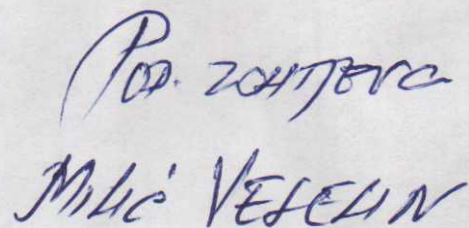 Pod. zahtjeva
Milić VESELIN